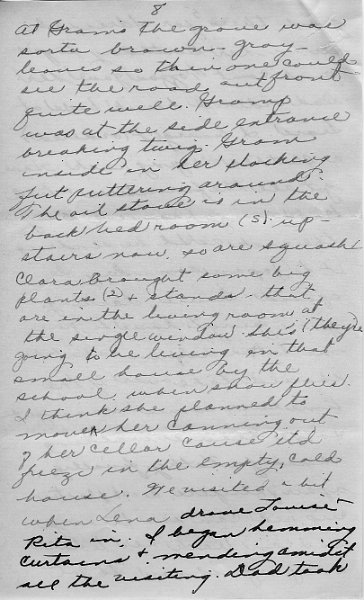 8
At Grams the grove was
sorta brown-gray-
leaves so thin one could
see the road out front
quite well. Gramp
was at the side entrance
breaking twig. Gram
inside in her stocking
fut puttering around.
The oil stove is in the
back bed room (S) up-
stairs now, so are squash
Clara brought some big
plants (2) + stands that
are in the living room at
the single window. She's (they're
going to be living in that
small house by the
school, when snow flies.
I think she planned to
move her canning out
of her cellar cause it'd
freeze in the empty, cold
house. We visited a bit
when Lena drove Louise
Rita in. I began hemming
curtains + mending amidst
all the visiting. Dad took